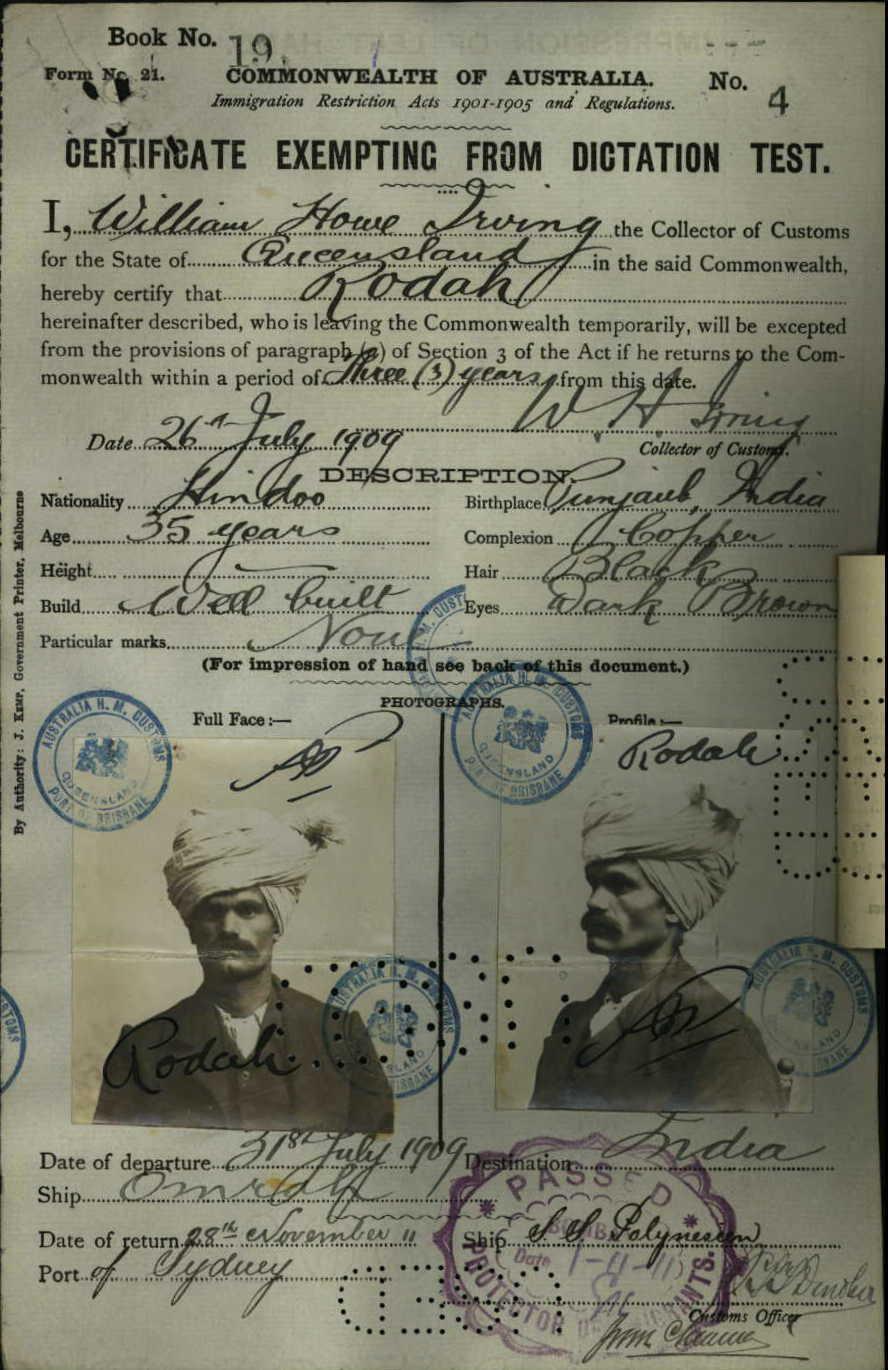 Book No. 19
Form No. 21.
COMMONWEALTH OF AUSTRALIA. No. 4
Immigration Restriction Acts 1901-1905 and Regulations.
CERTIFICATE EXEMPTING FROM DICTATION TEST.
I, William Howe Irving the Collector of Customs
for the State of Queensland in the said Commonwealth,
hereby certify that Rodah
hereinafter described, who is leaving the Commonwealth temporarily, will be excepted
from the provisions of paragraph (a) of Section 3 of the Act if he returns to the Com-
monwealth within a period of Three (3) years from this date.
W H Irving
Date 26th July 1909 Collector of Customs.
DESCRIPTION.
Nationality Hindoo Birthplace Punjaub, India
Age 35 years Complexion Copper
Height Hair Black
Build Well built Eyes Dark Brown
Particular marks None
(For impression of hand see back of this document.)
PHOTOGRAPHS.
Full Face :— Profile :—
AUSTRALIA H. M. CUSTOMS QUEENSLAND PORT OF BRISBANE
AUSTRALIA H. M. CUSTOMS QUEENSLAND PORT OF BRISBANE
Rodah
Rodah
AUSTRALIA H. M. CUSTOMS
AUSTRALIA H. M. CUSTOMS
Date of departure 31st July 1909 Destination India
Ship
Date of return 28th November 11 Ship S.S. Polynesien
Port of Sydney
PASSED
Date 1-11-11
PROTECTOR OF EMIGRANTS.
Customs Officer
By Authority: J. KEMP, Government Printer, Melbourne